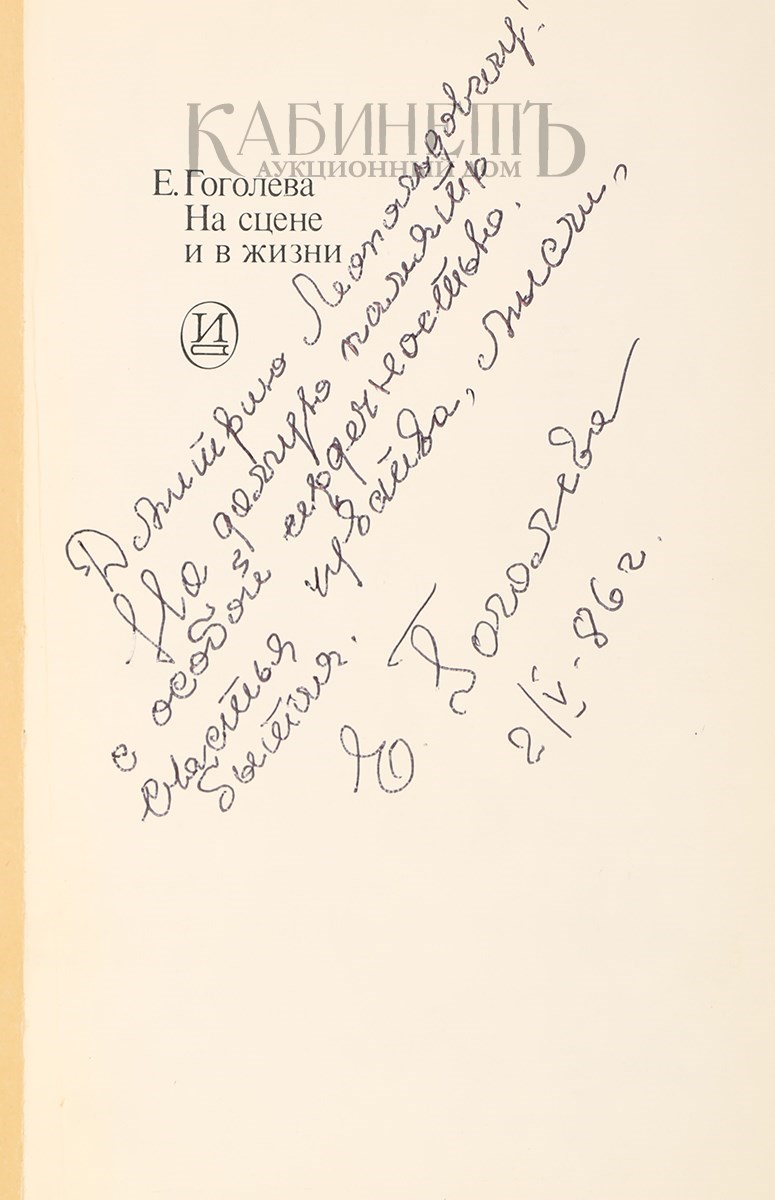 КАБИНЕТЪ
АУКЦИОННЫЙ ДОМ
Е. Гоголева
На сцене
и в жизни
И
Дмитрию Леопольдовичу!
На долгую память
с особой сердечностью.
Счастья чувства, мысли,
бытия.
Е Гоголева
2/V-86 г.